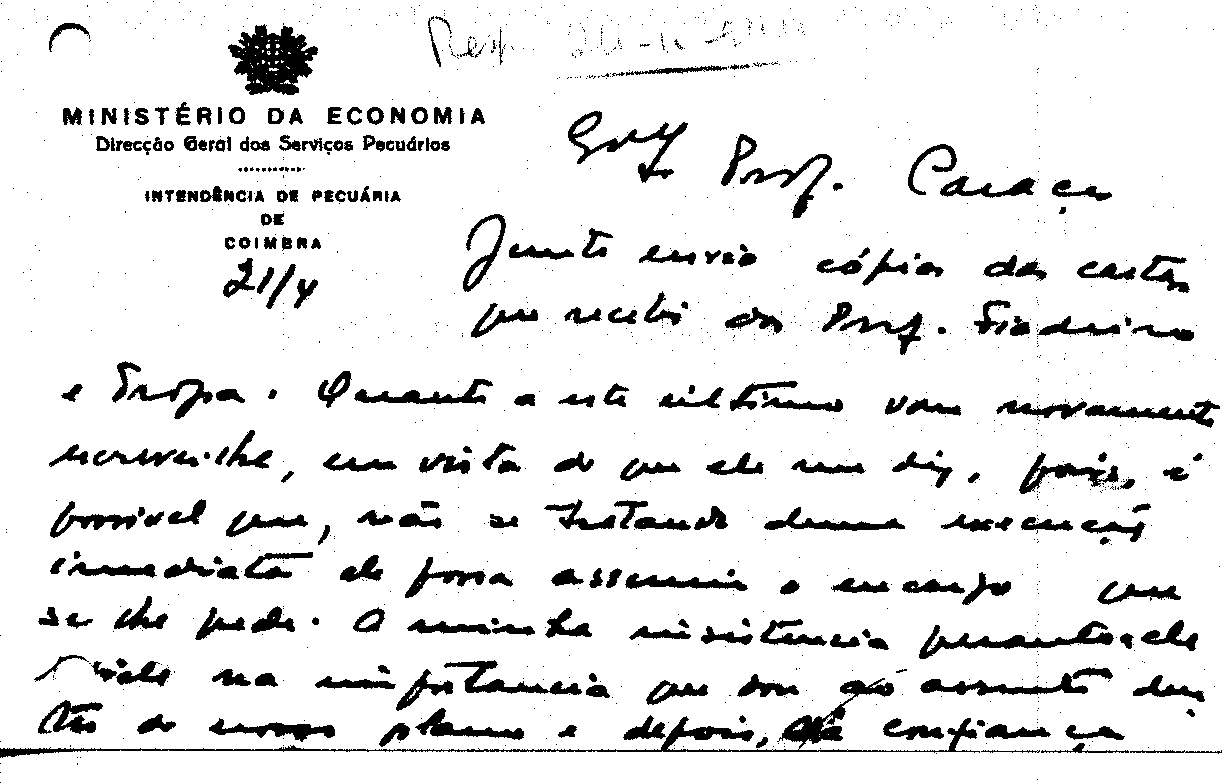 Resp.
MINISTÉRIO DA ECONOMIA
Direcção Geral dos Serviços Pecuários
INTENDÊNCIA DE PECUÁRIA
DE
COIMBRA
21/4
Prof. Caraça
Junto envio cópias das cartas
que recebi dos Prof. Fiadeiro
e Tropa. Quanto a este último vou novamente
escrever-lhe, em vista do que ele me diz, pois, é
possível que, não se tratando duma execução
imediata ele possa assumir o encargo que
se lhe pede. A minha insistência perante ele
reside na importância que dou ao assunto den
tro do nosso plano e depois, da confiança